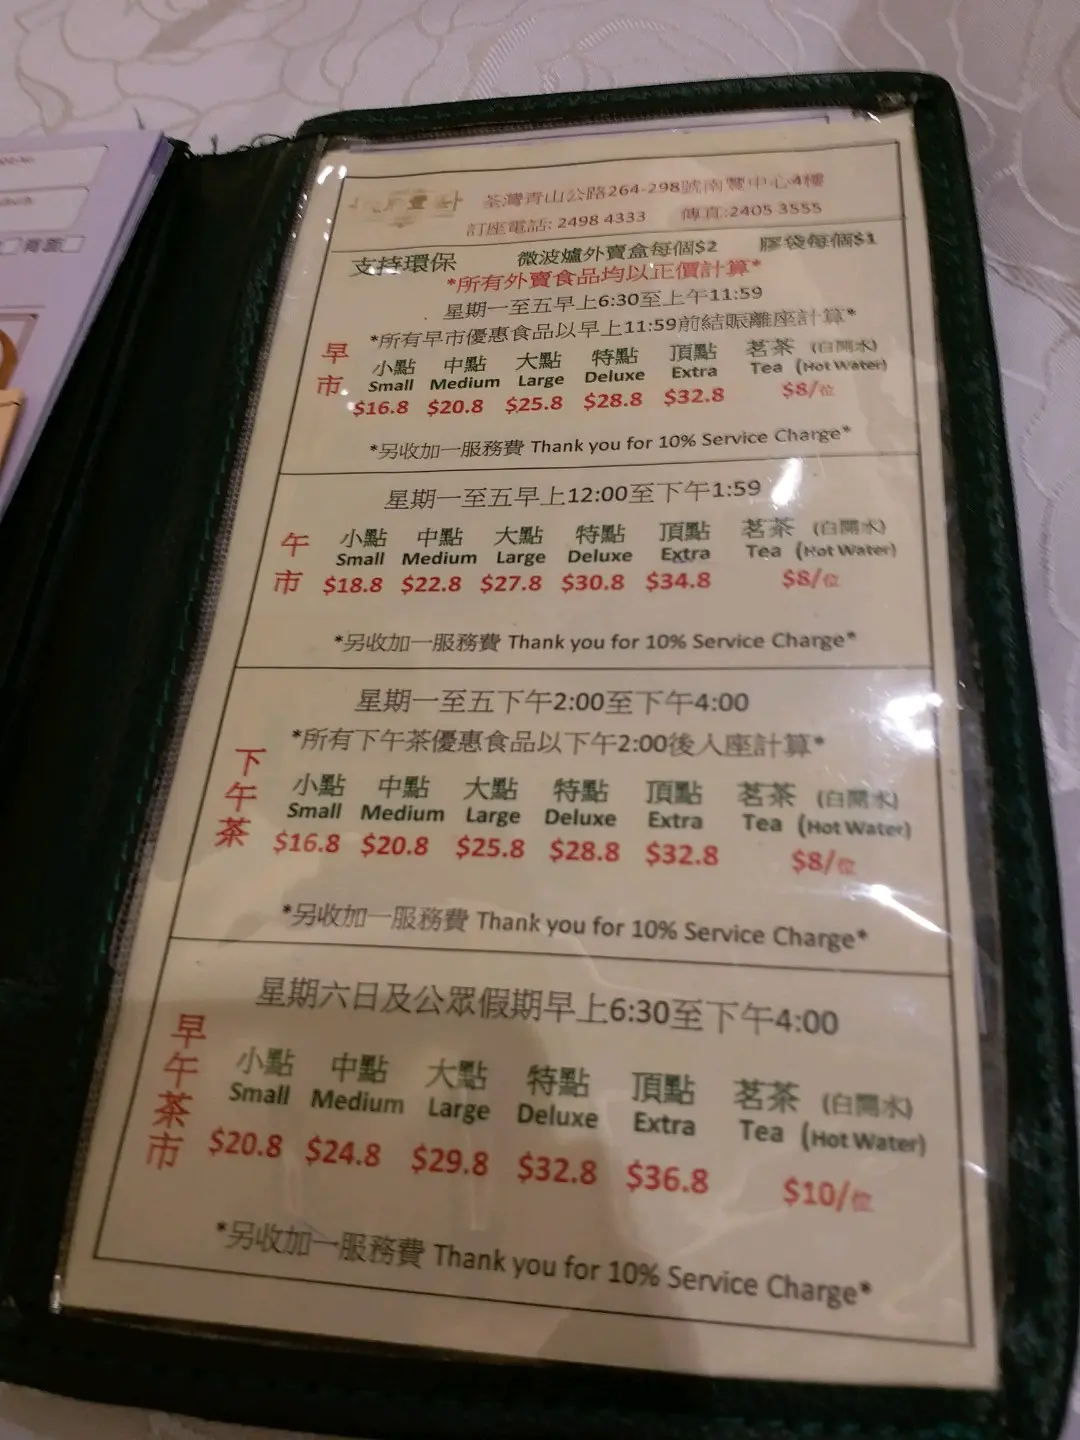 荃灣青山公路264-298號南豐中心4樓
訂座電話: 2498 4333 傳真:2405 3555
支持環保 微波爐外賣盒每個$2 膠袋每個$1
*所有外賣食品均以正價計算*
星期一至五早上6:30至上午11:59
*所有早市優惠食品以早上11:59前結賬離座計算*
早市
小點 中點 大點 特點 頂點 茗茶 (白開水)
Small Medium Large Deluxe Extra Tea (Hot Water)
$16.8 $20.8 $25.8 $28.8 $32.8 $8/位
*另收加一服務費 Thank you for 10% Service Charge*
星期一至五早上12:00至下午1:59
午市
小點 中點 大點 特點 頂點 茗茶 (白開水)
Small Medium Large Deluxe Extra Tea (Hot Water)
$18.8 $22.8 $27.8 $30.8 $34.8 $8/位
*另收加一服務費 Thank you for 10% Service Charge*
星期一至五下午2:00至下午4:00
*所有下午茶優惠食品以下午2:00後入座計算*
下午茶
小點 中點 大點 特點 頂點 茗茶 (白開水)
Small Medium Large Deluxe Extra Tea (Hot Water)
$16.8 $20.8 $25.8 $28.8 $32.8 $8/位
*另收加一服務費 Thank you for 10% Service Charge*
星期六日及公眾假期早上6:30至下午4:00
早午茶市
小點 中點 大點 特點 頂點 茗茶 (白開水)
Small Medium Large Deluxe Extra Tea (Hot Water)
$20.8 $24.8 $29.8 $32.8 $36.8 $10/位
*另收加一服務費 Thank you for 10% Service Charge*